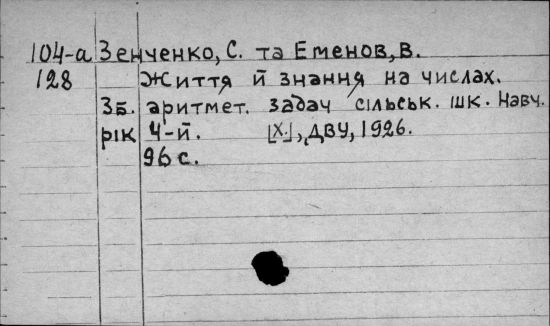 104-а Зенченко, С. та Еменов, В.
128 Життя й знання на числах.
Зб. аритмет. задач сільськ. шк. Навч.
рік 4-й. [Х.], ДВУ, 1926.
96 с.